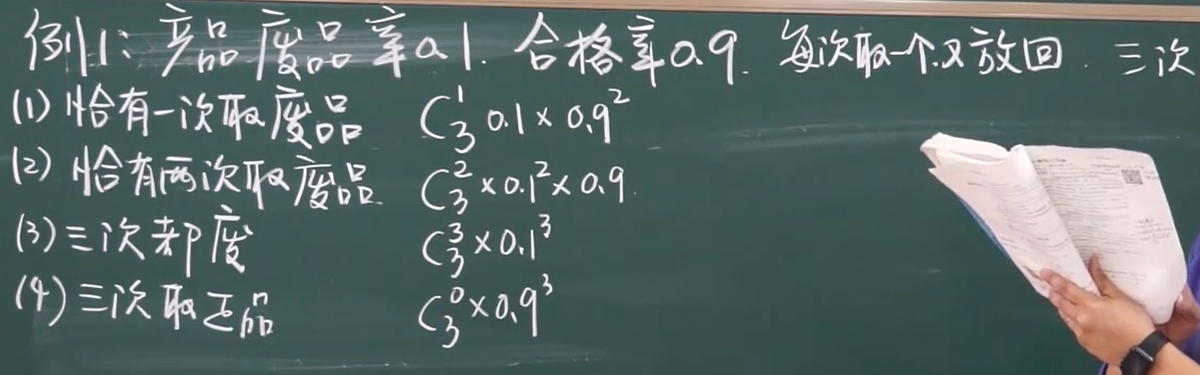 例1: 产品废品率0.1. 合格率0.9. 每次取一个.又放回. 三次
(1) 恰有一次取废品 C₃¹ 0.1 × 0.9²
(2) 恰有两次取废品 C₃² × 0.1² × 0.9.
(3) 三次都废 C₃³ × 0.1³
(4) 三次取正品 C₃⁰ × 0.9³